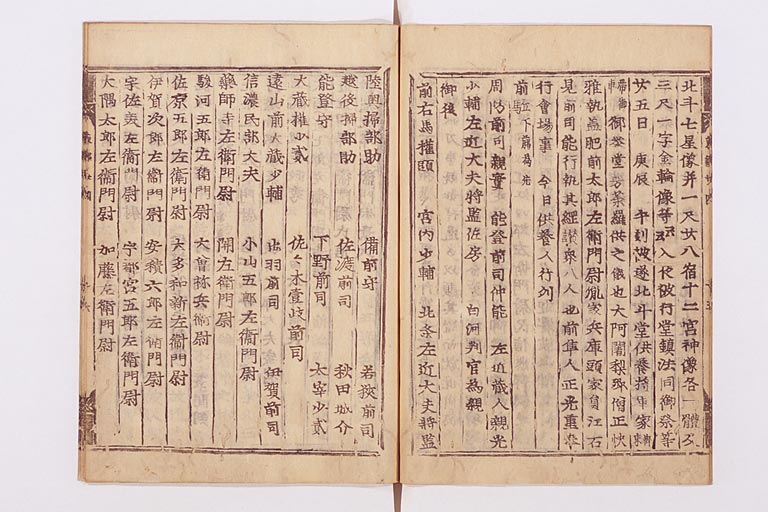 北斗七星像并一尺廿八宿十二宮神像各一體又
三尺一字金輪像等
廿五日 庚辰 午刻被遂北斗堂供養將軍家
御登堂曼荼羅供之儀也大阿闍梨 僧正快
雅執蓋肥前太郎左衛門尉胤家兵庫頭家員江石
見前司能行執其經讃衆八人也前隼人正光重奉
行會場事 今日供養人行列
前
周防前司親實 能登前司仲能 左近藏人親光
小輔左近大夫將監佐房 白河判官為親
御後
前右馬權頭 宮内少輔 北条左近大夫將監
陸奥掃部助 備前守 若狹前司
越後掃部助 佐渡前司 秋田城介
能登守 下野前司 太宰少貳
大藏權少貳 佐々木壹岐前司
遠山前大藏少輔 出羽前司 伊賀前司
信濃民部大夫 小山五郎左衛門尉
藥師寺左衛門尉 關左衛門尉
駿河五郎左衛門尉 大曾祢兵衛尉
佐原五郎左衛門尉 大多和新左衛門尉
伊賀次郎左衛門尉 安積六郎左衛門尉
宇佐美左衛門尉 宇都宮五郎左衛門尉
大隅太郎左衛門尉 加藤左衛門尉